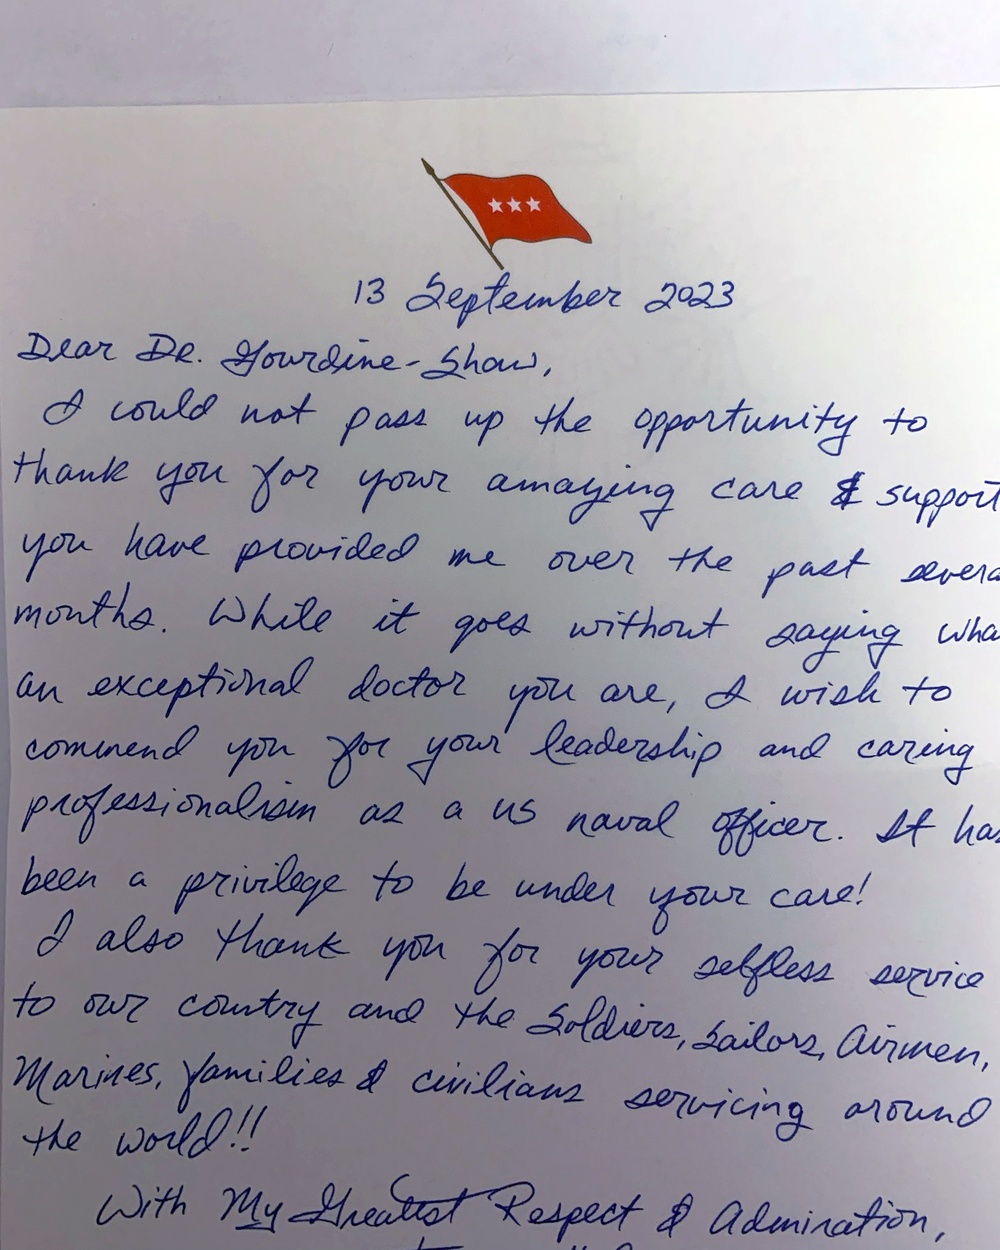 13 September 2023
Dear Dr. Gourdine-Shaw,
I could not pass up the opportunity to
thank you for your amazing care & support
you have provided me over the past severa
months. While it goes without saying wha
an exceptional doctor you are, I wish to
commend you for your leadership and caring
professionalism as a US naval officer. It has
been a privilege to be under your care!
I also thank you for your selfless service
to our country and the Soldiers, Sailors, Airmen,
Marines, families & civilians servicing around
the world!!
With My Greatest Respect & Admiration,